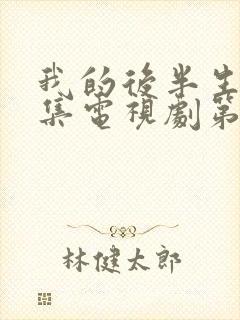 我的後半生
集電視劇第
林健太郎